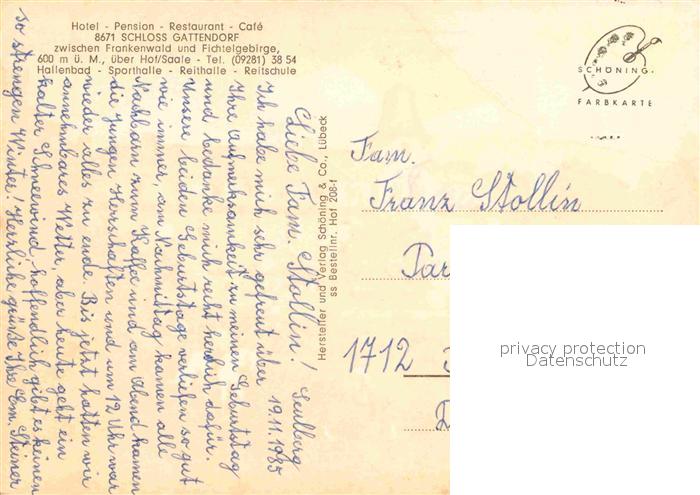 Hotel - Pension - Restaurant - Café
8671 SCHLOSS GATTENDORF
zwischen Frankenwald und Fichtelgebirge,
600 m ü. M., über Hof/Saale - Tel. (09281) 38 54
Hallenbad - Sporthalle - Reithalle - Reitschule
SCHÖNING
FARBKARTE
Hersteller und Verlag Schöning & Co., Lübeck
ss Bestellnr. Hof 208-1
19.11.1985
Liebe Fam. Stollin!
Ich habe mich sehr gefreut über
Ihre Aufmerksamkeit zu meinen Geburtstag
und bedanke mich recht herzlich dafür.
Unsere beiden Geburtstage verliefen so gut
wie immer, am Nachmittag kamen alle
Nachbarn zum Kaffee und am Abend kamen
die jungen Herrschaften und um 12 Uhr war
wieder alles zu ende. Bis jetzt hatten wir
annehmbares Wetter, aber heute geht ein
kalter Schneewind, hoffendlich gibt es keinen
so strengen Winter! Herzliche grüße Ihre Em. Steiner
Fam.
Franz Stollin
Par
1712
privacy protection
Datenschutz